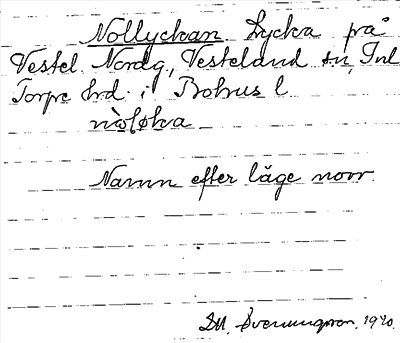 Nollyckan Lycka på
Vestel Nordg, Vesteland sn, Inl
Torpe hrd. i Bohus l
nòlø̀ka
Namn efter läge norr
DM. Svenungsson. 1920.